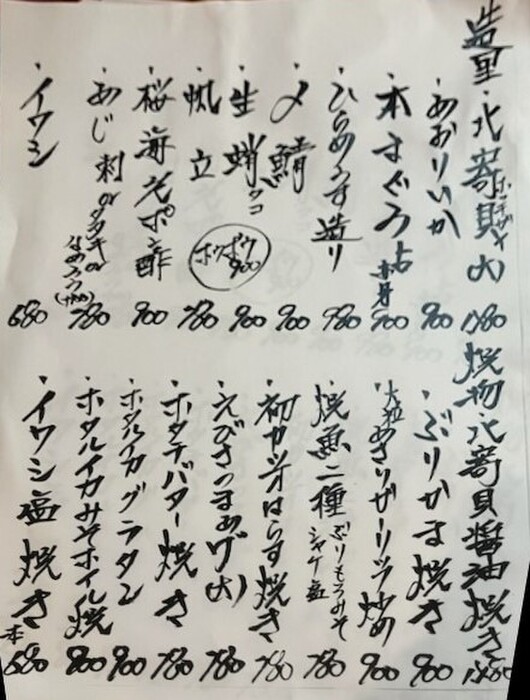 造里・北寄貝 ホンビザキ (大) 1280
・あおりいか 900
・本まぐろ 赤身 900
・ひらめうす造り 980
・〆鯖 900
・生蛸 タコ 900
ホウボウ 900
・帆立 780
・桜海老ポン酢 900
・あじ 刺 or タタキ or なめろう (+100) 780
・イワシ 680
焼物 北寄貝醤油焼き
・ぶりかま焼き 900
・大粒あさりガーリック炒め 900
・焼魚二種 ぶりもろみそ シャケ塩 780
・初カツオはらす焼き 780
・えびさつまあげ(大) 780
・ホタテバター焼き 780
・ホタルイカグラタン 900
・ホタルイカみそホイル焼 800
・イワシ塩焼き 680